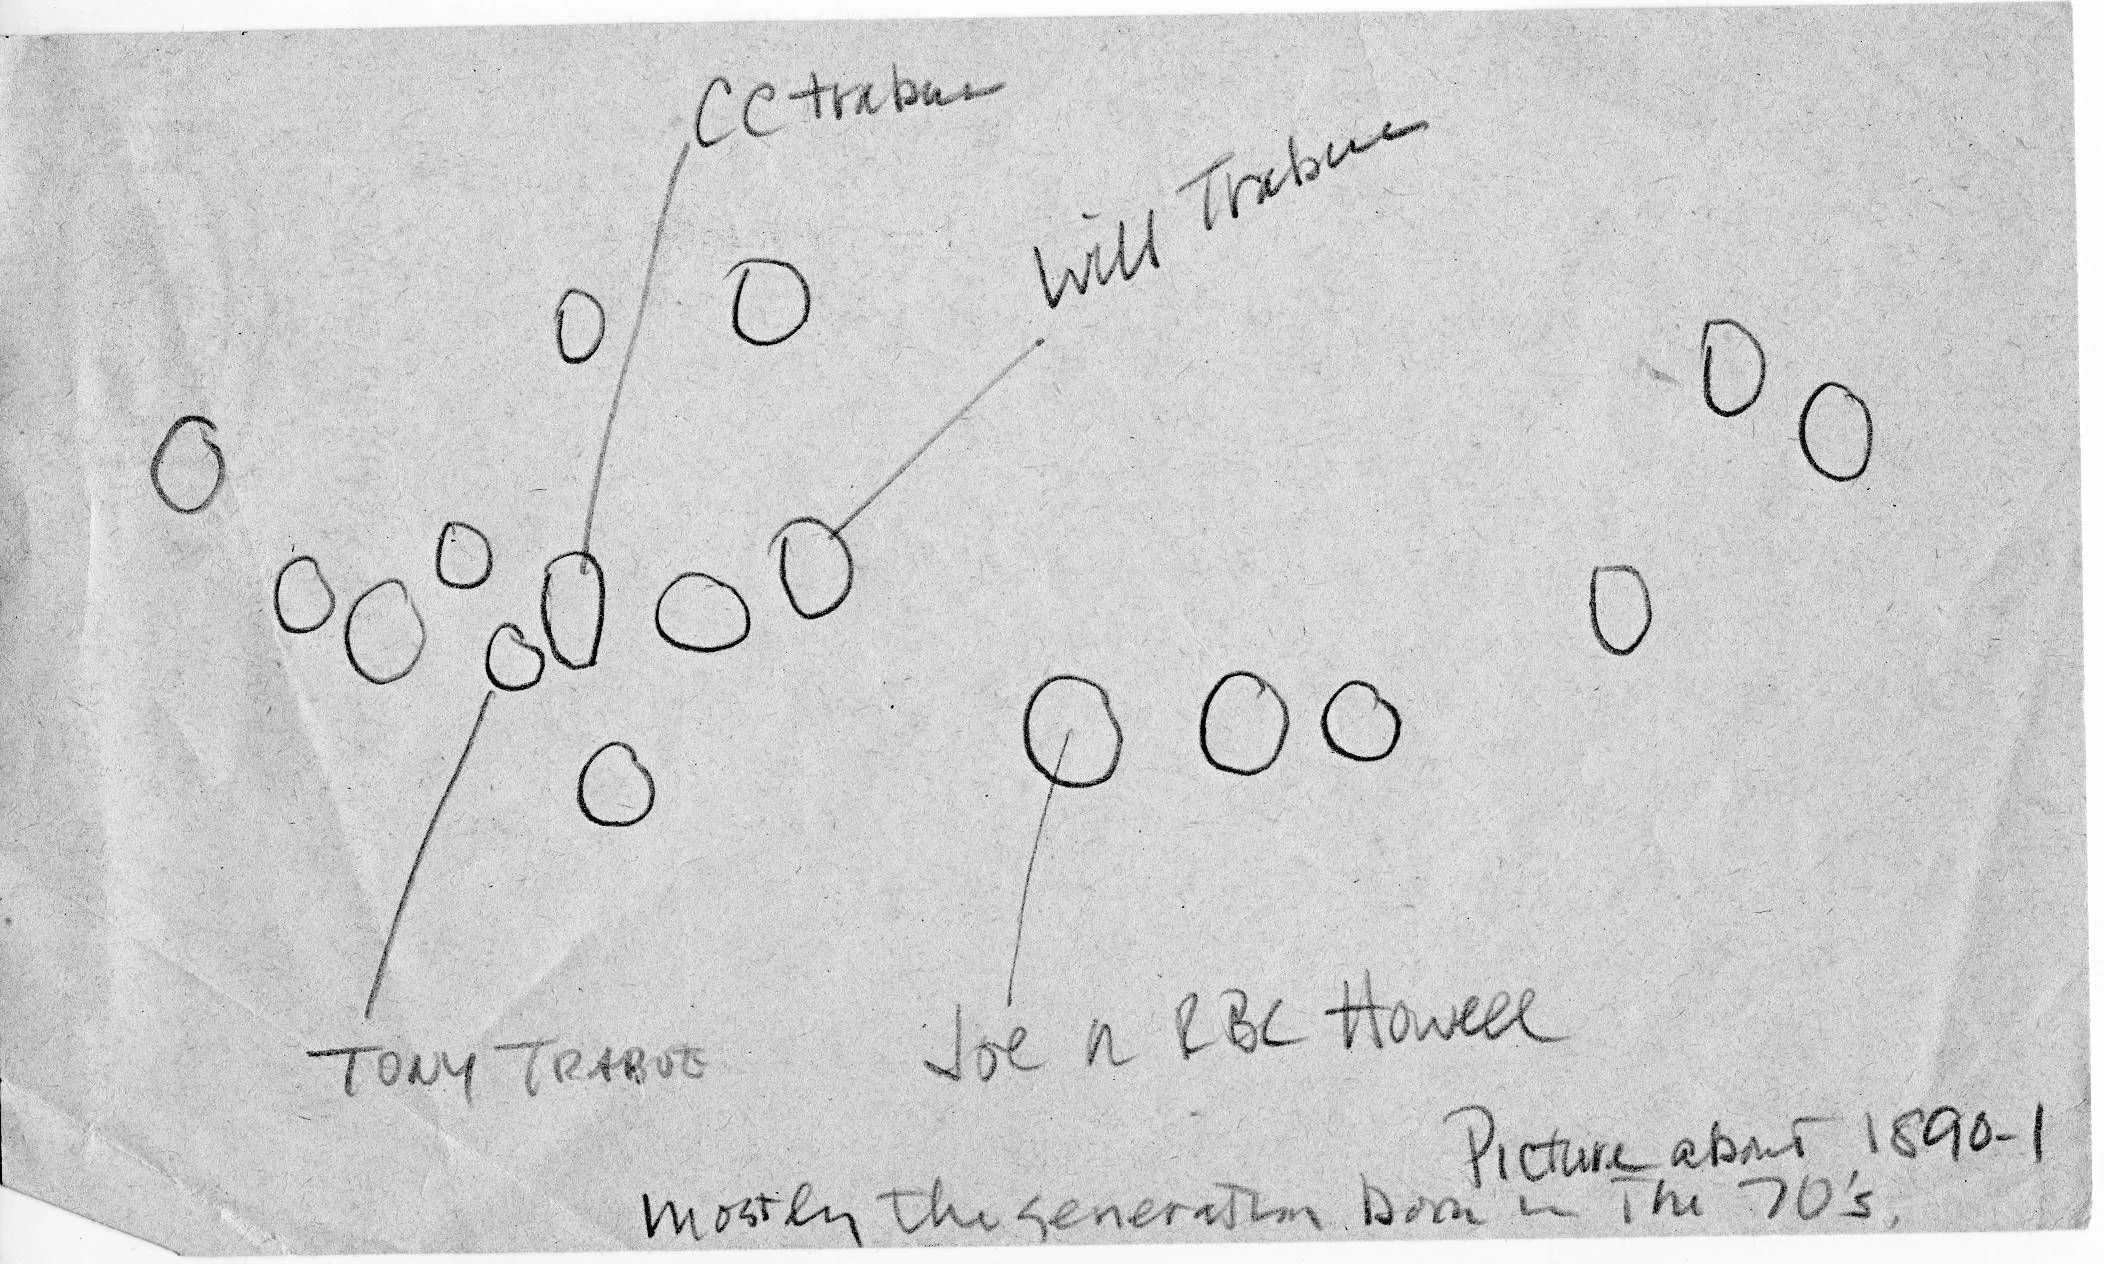 CC Trabue
Will Trabue
TONY TRABUE
Joe n RBC Howell
Picture about 1890-1
Mostly the generation born in The 70's.